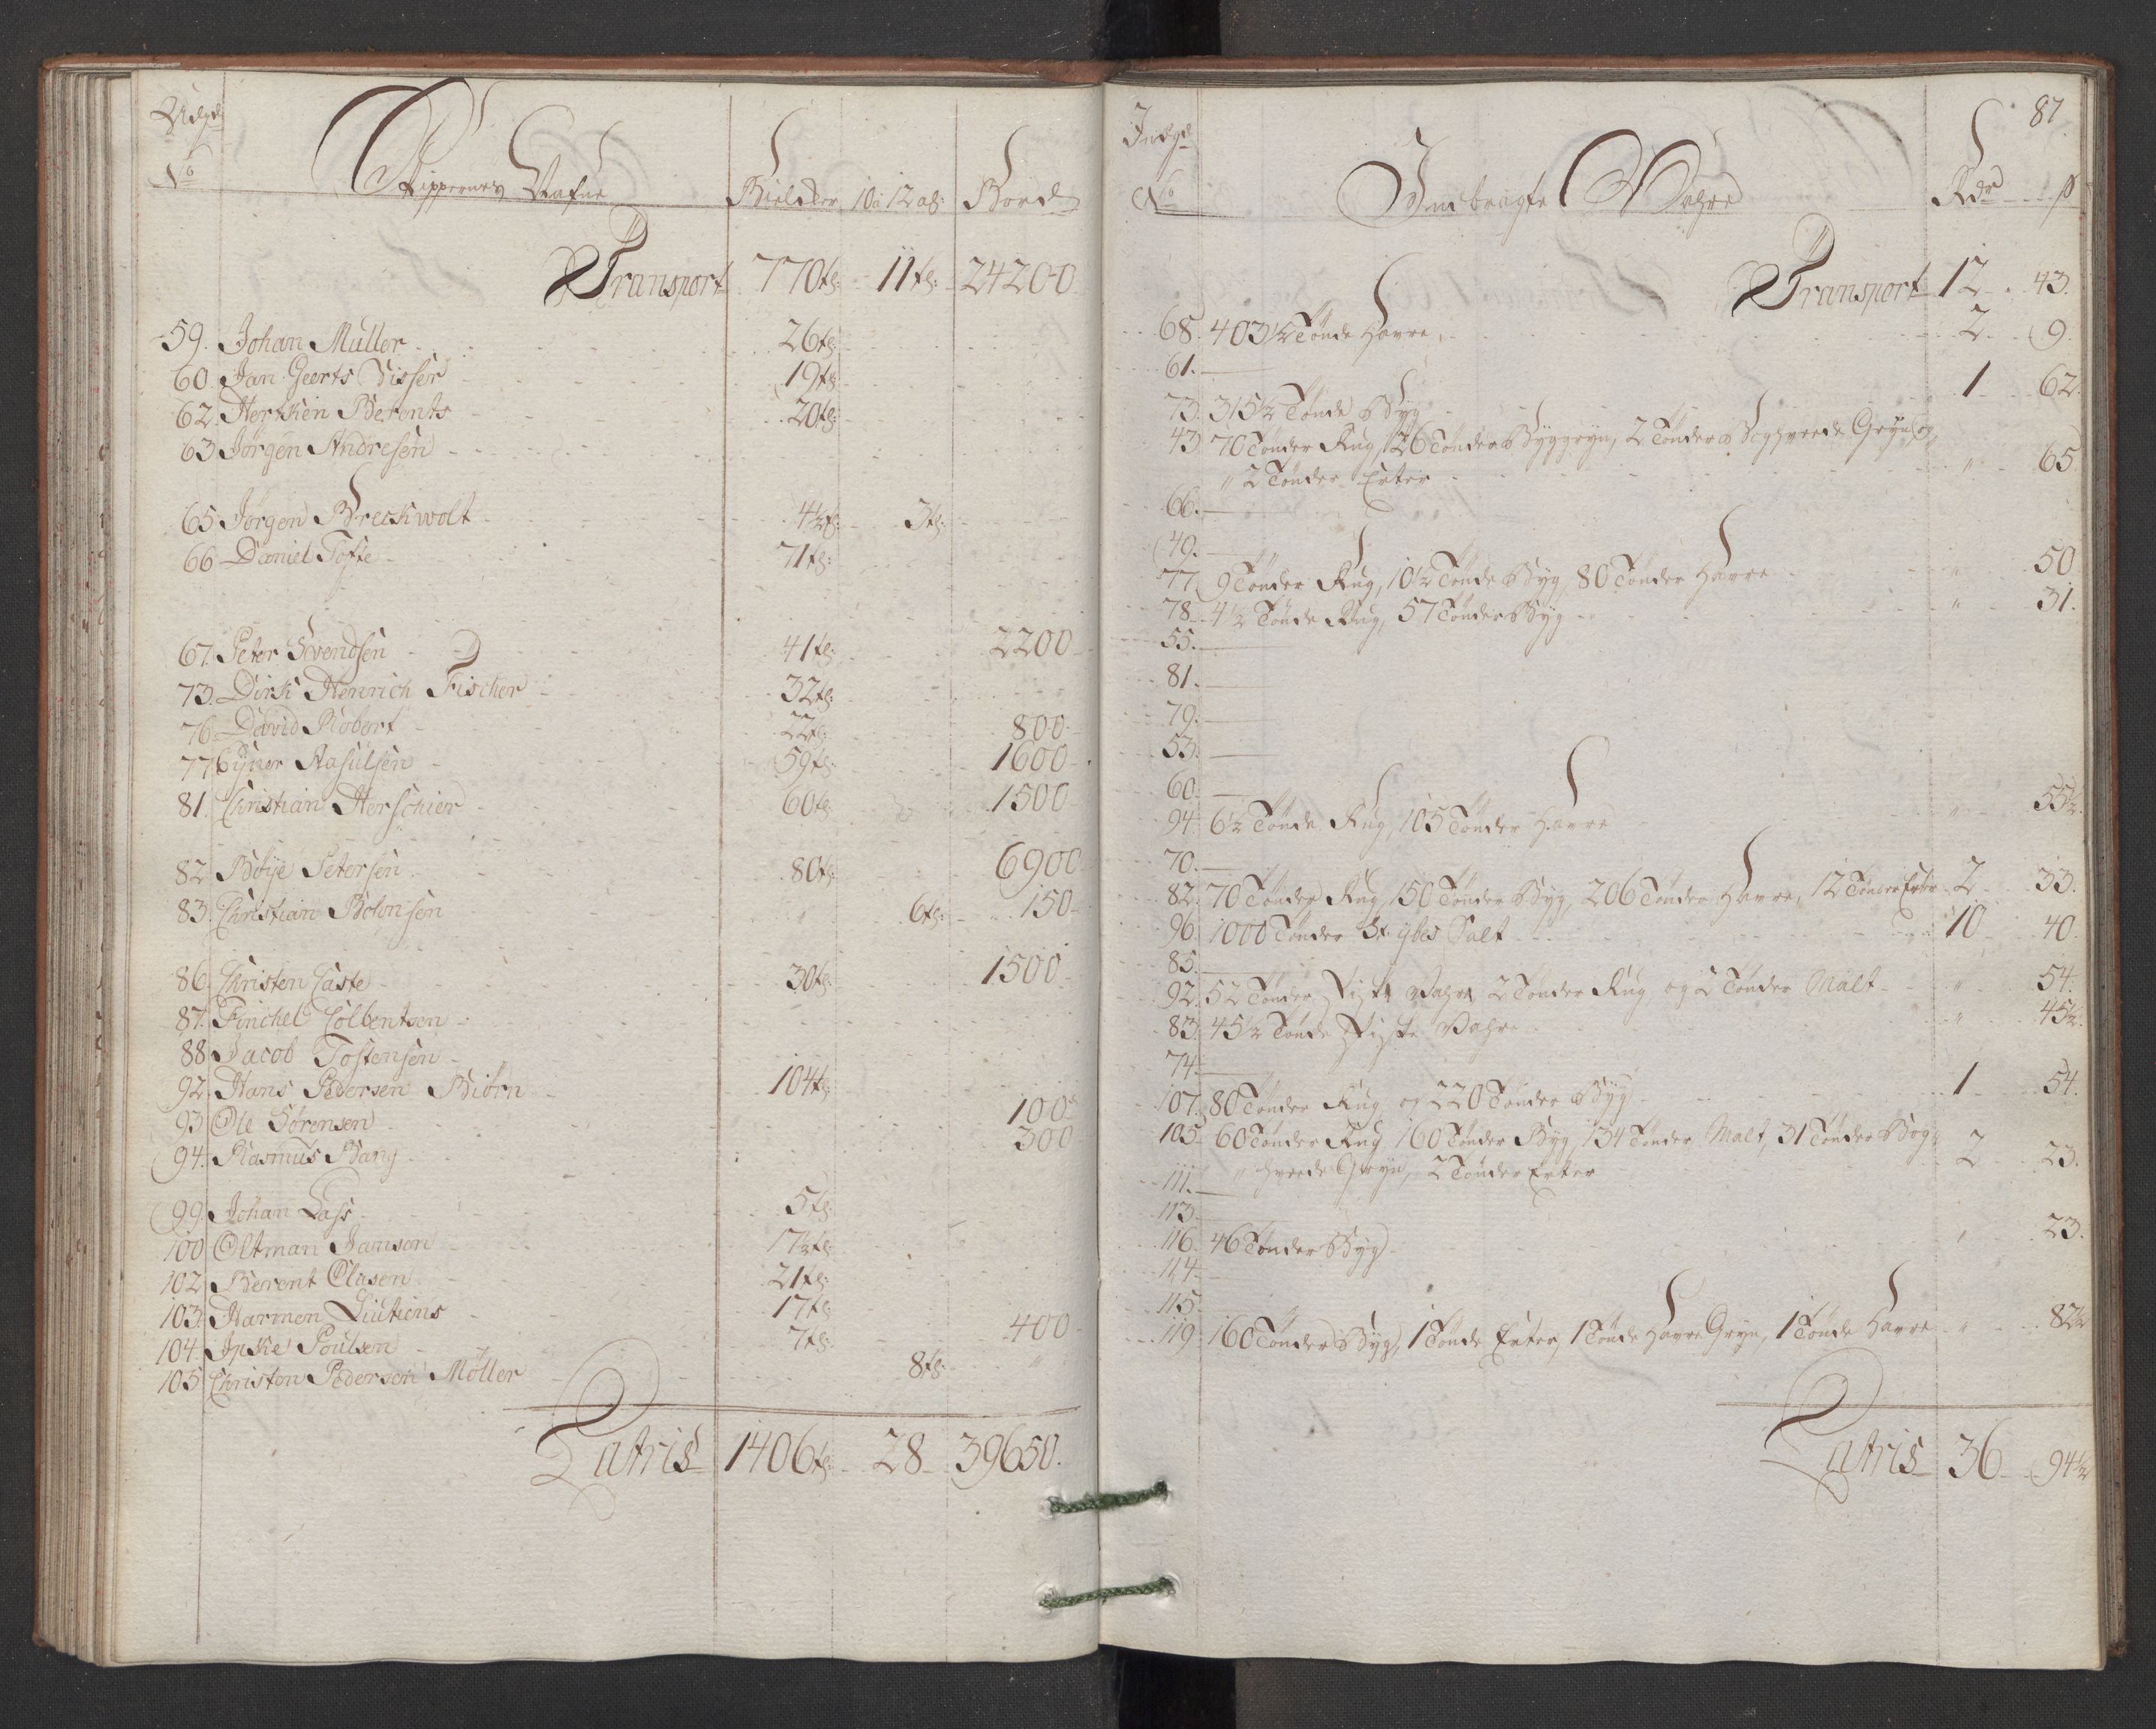 Udgd.
No
Skippernes Nafne
Bielcker
10 a 12 al:
Bord
Transport 770 tl: 11 tl: 24200
59. Johan Müller 26 tl:
60. Jan Geerts Visser 19 tl:
62. Herksen Berents 20 tl:
63 Jörgen Andresen
65 Jörgen Breckwolt 4½ tl: 3 tl:
66 Daniel Tofte 71 tl:
67. Peter Svendsen 41 tl: 2200
73. Dirk Henrich Fischer 32 tl:
76. David Robert 22 tl: 800
77 Aasulsen 59 tl: 1600
81. Christian Herschier 60 tl: 1500
82 Böye Petersen 80 tl: 6900
83. Christian 6 tl: 150
86. Christen Caste 30 tl: 1500
87. Finchel Colbentsen
88 Jacob Tostensen
92. Hans Pedersen Biörn 104 tl:
93 Ole Sörensen 100
94. Rasmus Bang 300
99. Johan Lass 5 tl:
100 Oltman Janson 17½ tl:
102 Berent Olasen 21 tl:
103. Harmen Liutiens 17 tl:
104. Ipke Poulsen 7 tl: 400
105 Christen Pedersen Möller 8 tl: "
Latris 1406 tl: 28 39650.
87.
Indgd
No
Indbragte Vahre
Rdr ß
Transport 12 43.
68. 403½ Tönde Havre, 2 9.
61. —
73. 315½ Tönde Byg 1 62.
43. 70 Tönder Rug, 26 Tönder Byggryn, 2 Tönder Boghveede Gryn og
" 2 Tönder Erter " 65
66. —
49. —
77. 9 Tönder Rug, 10½ Tönde Byg, 80 Tönder Havre " 50
78. 4½ Tönde Rug, 57 Tönder Byg " 31.
55. —
81. —
79. —
53. —
60. —
94. 6½ Tönde Rug, 105 Tönder Havre " 55½.
70. —
82. 70 Tönder Rug, 150 Tönder Byg, 206 Tönder Havre, 12 Tönder Erter 2 33.
96. 1000 Tönder St: ybes Salt 10 40.
85. —
92. 52 Tönder Vahre 2 Tönder Rug og 2 Tönder Malt " 54.
83. 45½ Tönde Vahre " 45½.
74. —
107. 80 Tönder Rug og 220 Tönder Byg 1 54.
105. 60 Tönder Rug 160 Tönder Byg, 134 Tönder Malt, 31 Tönder Bog=
" hveede Gryn, 2 Tönder Erter 2 23.
111. —
113. —
116. 46 Tönder Byg " 23.
114. —
115. —
119. 160 Tönder Byg, 1 Tönde Erter, 1 Tönde Havre Gryn, 1 Tönde Havre " 82½
Latris 36 94½